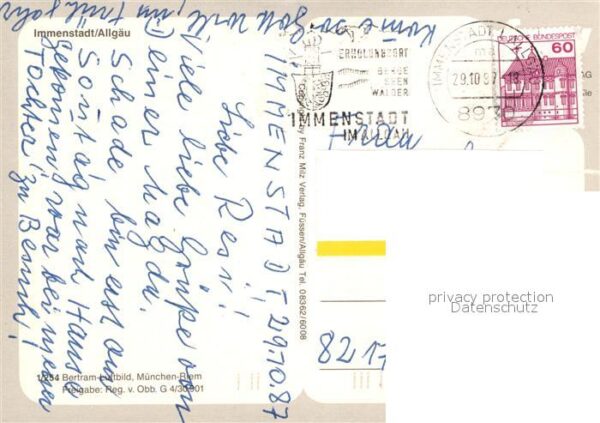 Immenstadt/Allgäu
IMMENSTADT 29.10.87
Liebe Resi!!
Viele liebe Grüße von
Deiner Magda.
Schade bin erst am
Sontag nach Hause
gekomen, war bei meiner
Tochter zu Besuch!
Kome so
Gott will, im Frühjahr
1/254 Bertram-Luftbild, München-Riem
Freigabe: Reg. v. Obb. G 4/30.901
Copyright by Franz Milz Verlag, Füssen/Allgäu Tel. 08362/6008
ERHOLUNGSORT
BERGE
SEEN
WÄLDER
IMMENSTADT
IM ALLGÄU
29.10.87-18
8970
DEUTSCHE BUNDESPOST
60
821
privacy protection
Datenschutz